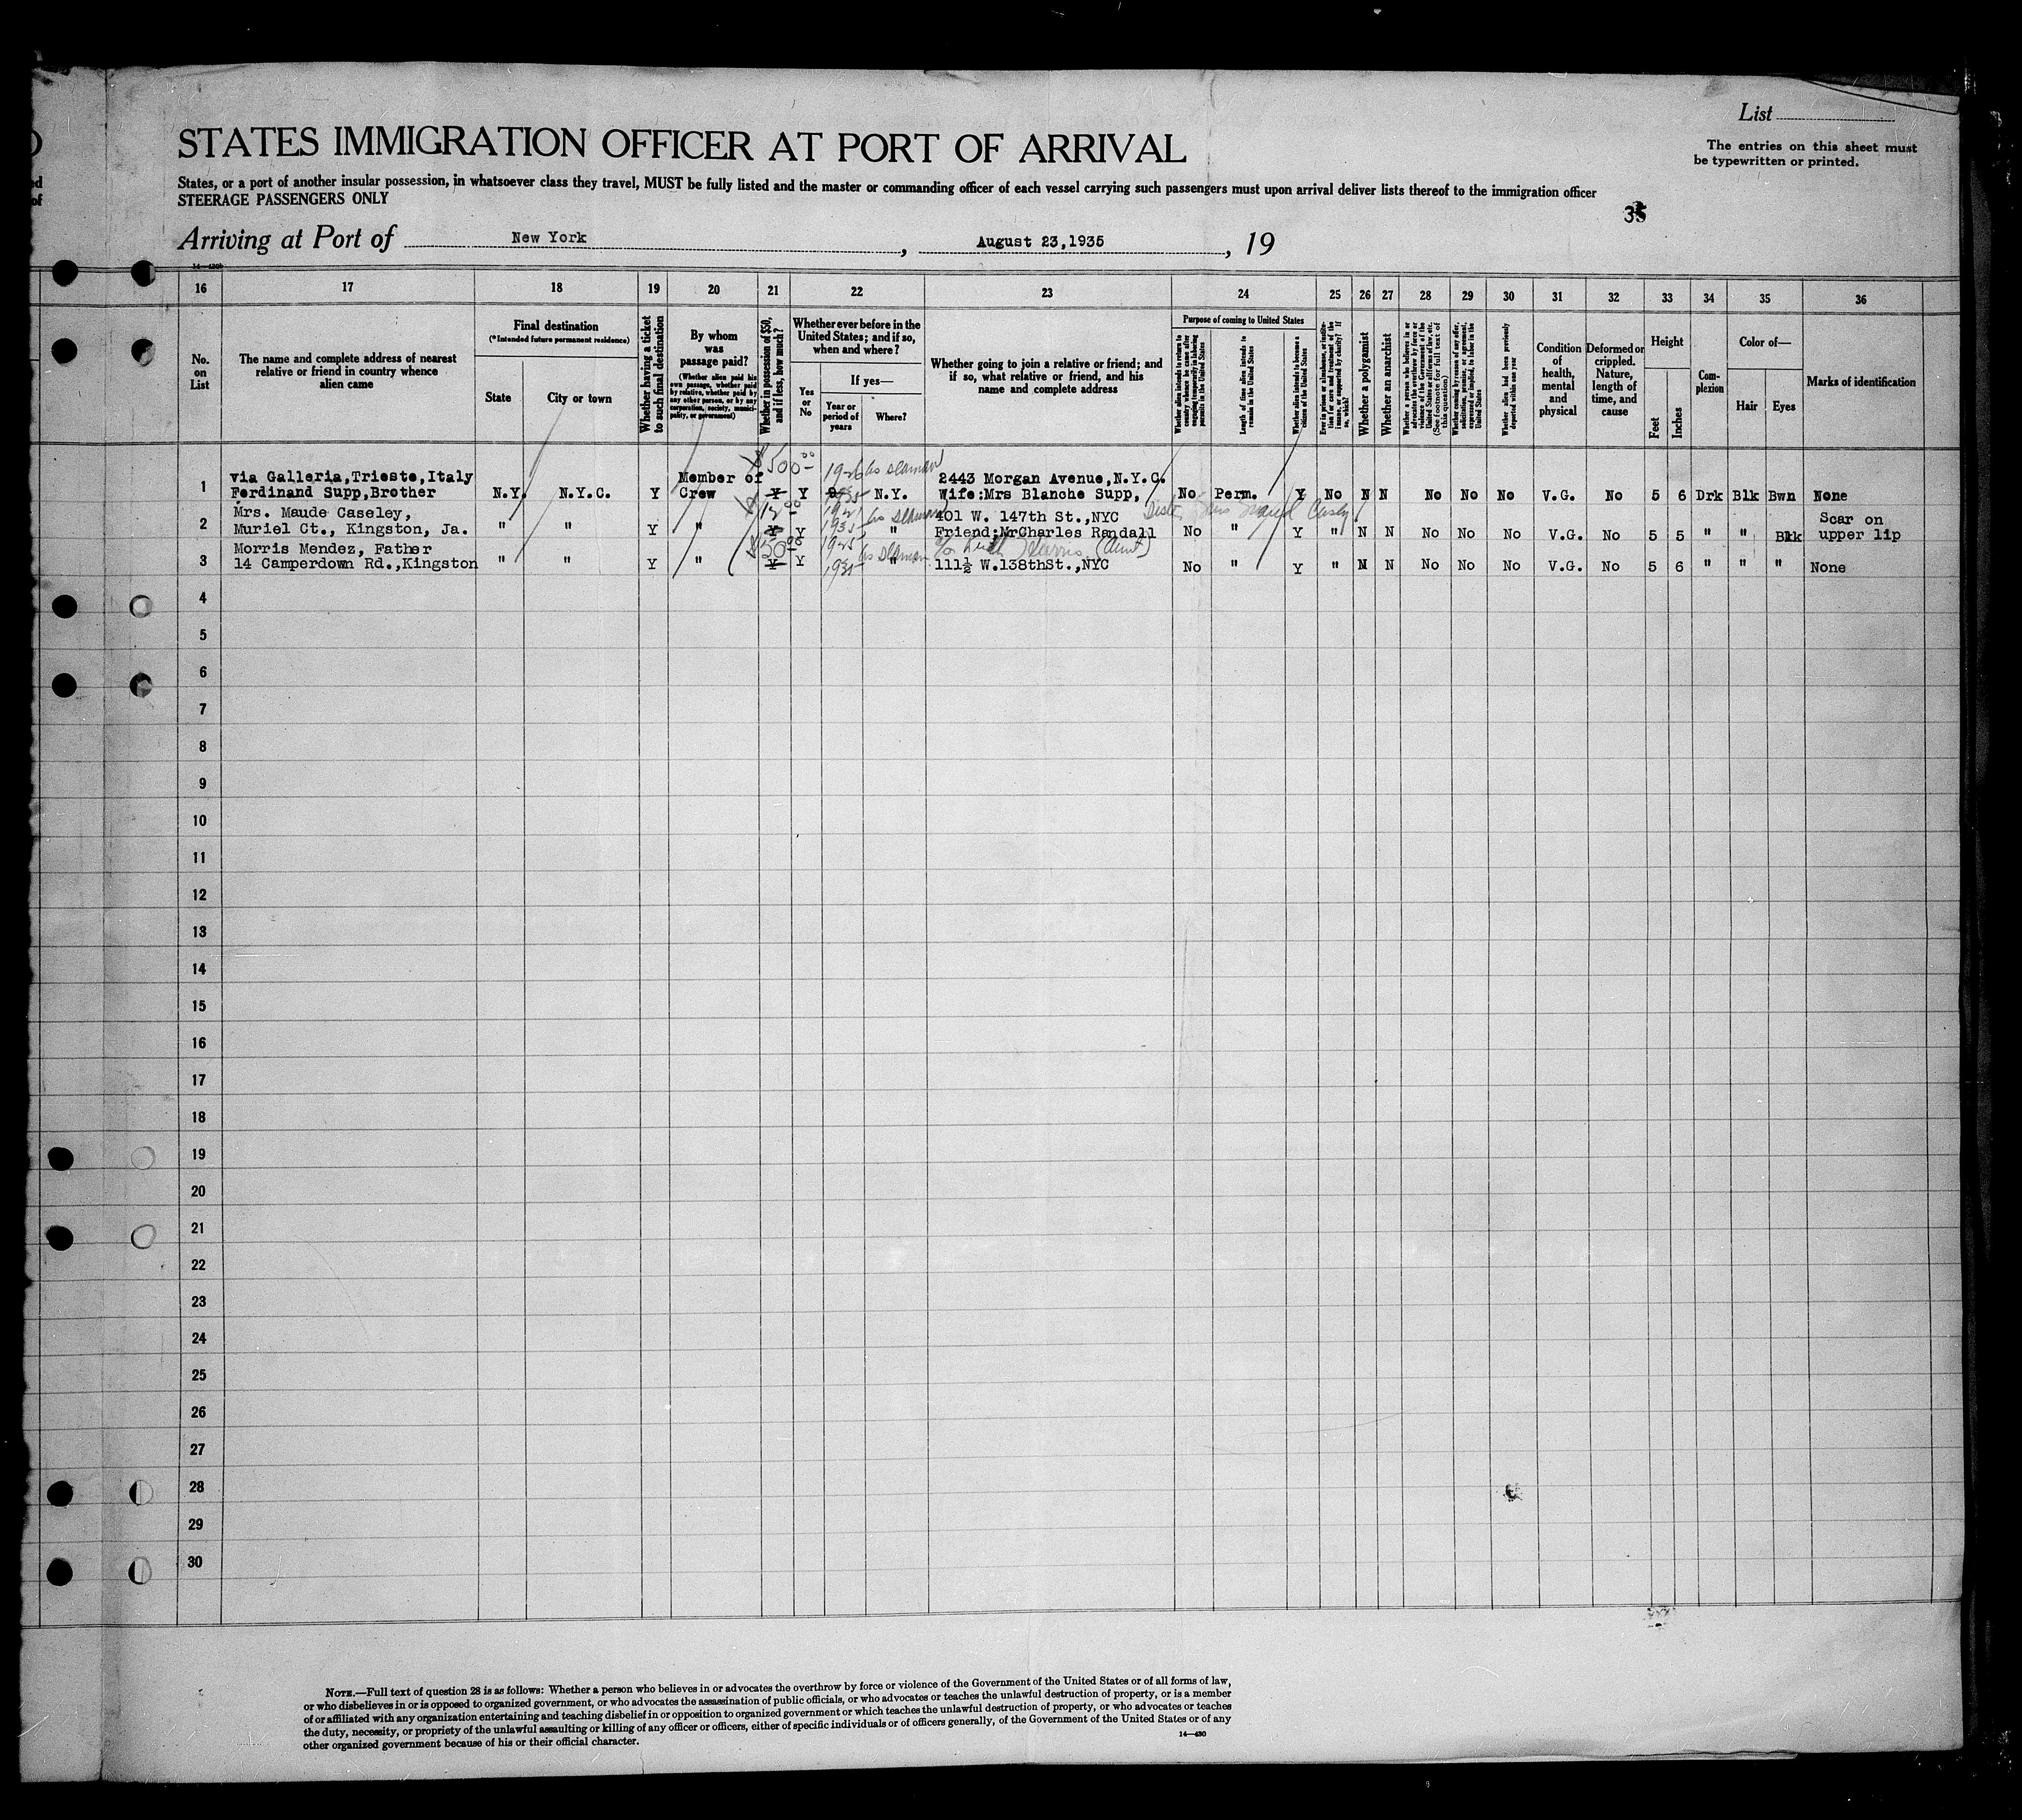 List
The entries on this sheet must
be typewritten or printed.
STATES IMMIGRATION OFFICER AT PORT OF ARRIVAL
States, or a port of another insular possession, in whatsoever class they travel, MUST be fully listed and the master or commanding officer of each vessel carrying such passengers must upon arrival deliver lists thereof to the immigration officer
STEERAGE PASSENGERS ONLY
35
Arriving at Port of New York, August 23,1935, 19
14—430
16 17 18 19 20 21 22 23 24 25 26 27 28 29 30 31 32 33 34 35 36
No. on List
The name and complete address of nearest
relative or friend in country whence
alien came
Final destination
(*Intended future permanent residence)
State
City or town
Whether having a ticket
to such final destination
By whom
was
passage paid?
(Whether alien paid his
own passage, whether paid
by relative, whether paid by
any other person, or by any
corporation, society, munici-
pality, or government)
Whether in possession of $50,
and if less, how much?
Whether ever before in the
United States; and if so,
when and where?
Yes
or
No
If yes—
Year or
period of
years
Where?
Whether going to join a relative or friend; and
if so, what relative or friend, and his
name and complete address
Purpose of coming to United States
Whether alien intends to return to
country whence he came after
engaging temporarily in laboring
pursuits in the United States
Length of time alien intends to
remain in the United States
Whether alien intends to become a
citizen of the United States
Ever in prison or almshouse, or institu-
tion for care and treatment of the
insane, or supported by charity? If
so, which?
Whether a polygamist
Whether an anarchist
Whether a person who believes in or
advocates the overthrow by force or
violence of the Government of the
United States or all forms of law, etc.
(See footnote for full text of
this question)
Whether coming by reason of any offer,
solicitation, promise, or agreement,
expressed or implied, to labor in the
United States
Whether alien had been previously
deported within one year
Condition
of
health,
mental
and
physical
Deformed or
crippled.
Nature,
length of
time, and
cause
Height
Feet
Inches
Com-
plexion
Color of—
Hair
Eyes
Marks of identification
$500.00 1926 as seaman
via Galleria,Trieste,Italy Member of 2443 Morgan Avenue,N.Y.C.
1 Ferdinand Supp,Brother N.Y. N.Y.C. Y Crew Y Y 1935 N.Y. Wife:Mrs Blanche Supp, No Perm. Y No N N No No No V.G. No 5 6 Drk Blk Bwn None
Mrs. Maude Caseley, as seaman 401 W. 147th St.,NYC Scar on
2 Muriel Ct., Kingston, Ja. " " Y " Y Y 1935 " Friend:MrCharles Randall No " Y " N N No No No V.G. No 5 5 " " Blk upper lip
Morris Mendez, Father $50.00 1925 as seaman c/o (Aunt)
3 14 Camperdown Rd.,Kingston " " Y " Y Y 1935 " 111½ W.138thSt.,NYC No " Y " N N No No No V.G. No 5 6 " " " None
4
5
6
7
8
9
10
11
12
13
14
15
16
17
18
19
20
21
22
23
24
25
26
27
28
29
30
NOTE.—Full text of question 28 is as follows: Whether a person who believes in or advocates the overthrow by force or violence of the Government of the United States or of all forms of law,
or who disbelieves in or is opposed to organized government, or who advocates the assassination of public officials, or who advocates or teaches the unlawful destruction of property, or is a member
of or affiliated with any organization entertaining and teaching disbelief in or opposition to organized government or which teaches the unlawful destruction of property, or who advocates or teaches
the duty, necessity, or propriety of the unlawful assaulting or killing of any officer or officers, either of specific individuals or of officers generally, of the Government of the United States or of any
other organized government because of his or their official character.
14—430